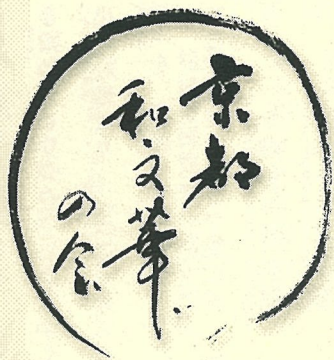 京都
和文華
の会